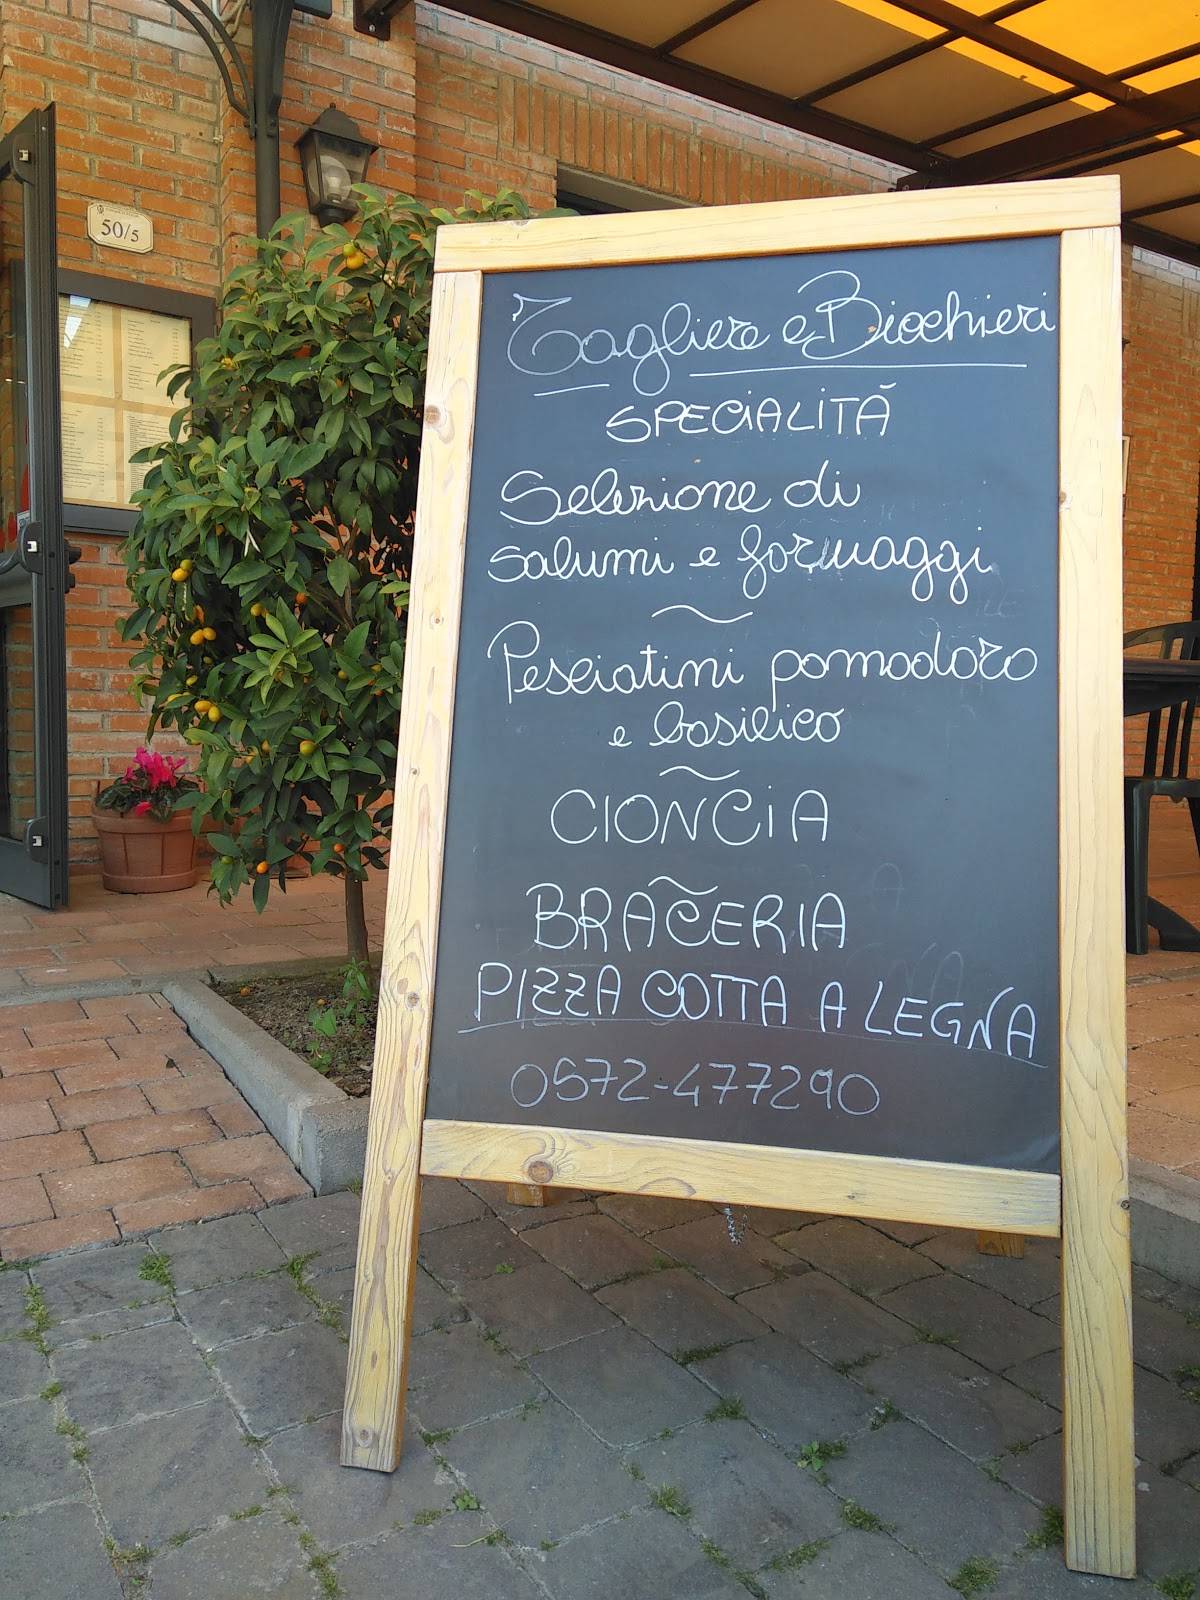 50/5
Tagliere e Bicchieri
SPECIALITÁ
Selezione di
salumi e formaggi
Pesciatini pomodoro
e basilico
CIONCIA
BRACERIA
PIZZA COTTA A LEGNA
0572-477290